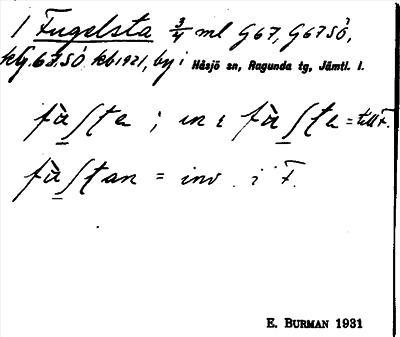 1 Fugelsta 3/4 ml G67, G67SÖ,
kG.67.SÖ kb1921, by i Håsjö sn, Ragunda tg, Jämtl. l.
fà̲ʃta ; in i fà̲ʃta = till F.
fà̲ʃtan = inv. i F.
E. BURMAN 1931